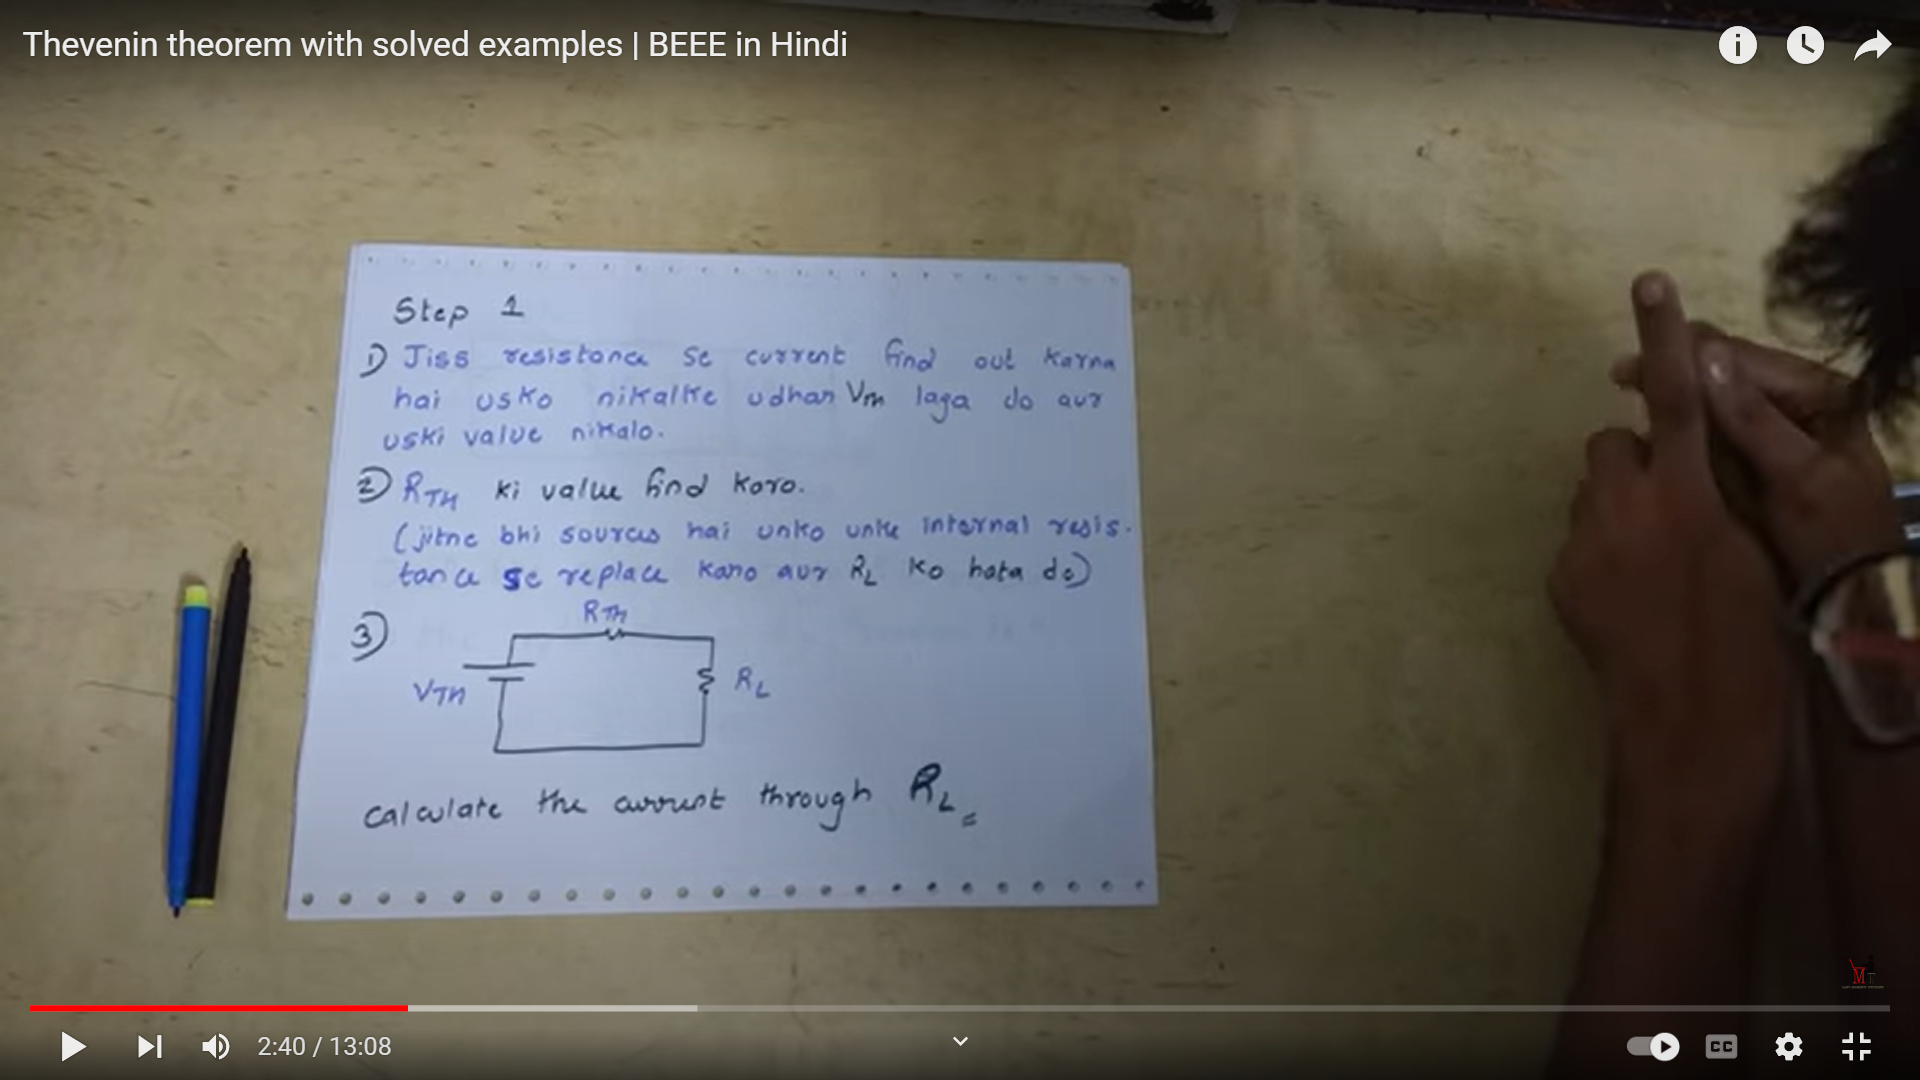 Thevenin theorem with solved examples | BEEE in Hindi
Step 1
1) Jiss resistance se current find out karna
hai usko nikalke udhar VTH laga do aur
uski value nikalo.
2) RTH ki value find karo.
(jitne bhi sources hai unko unke internal resis-
tance se replace karo aur RL ko hata do)
RTH
3)
VTH
RL
calculate the current through RL
2:40 / 13:08
CC